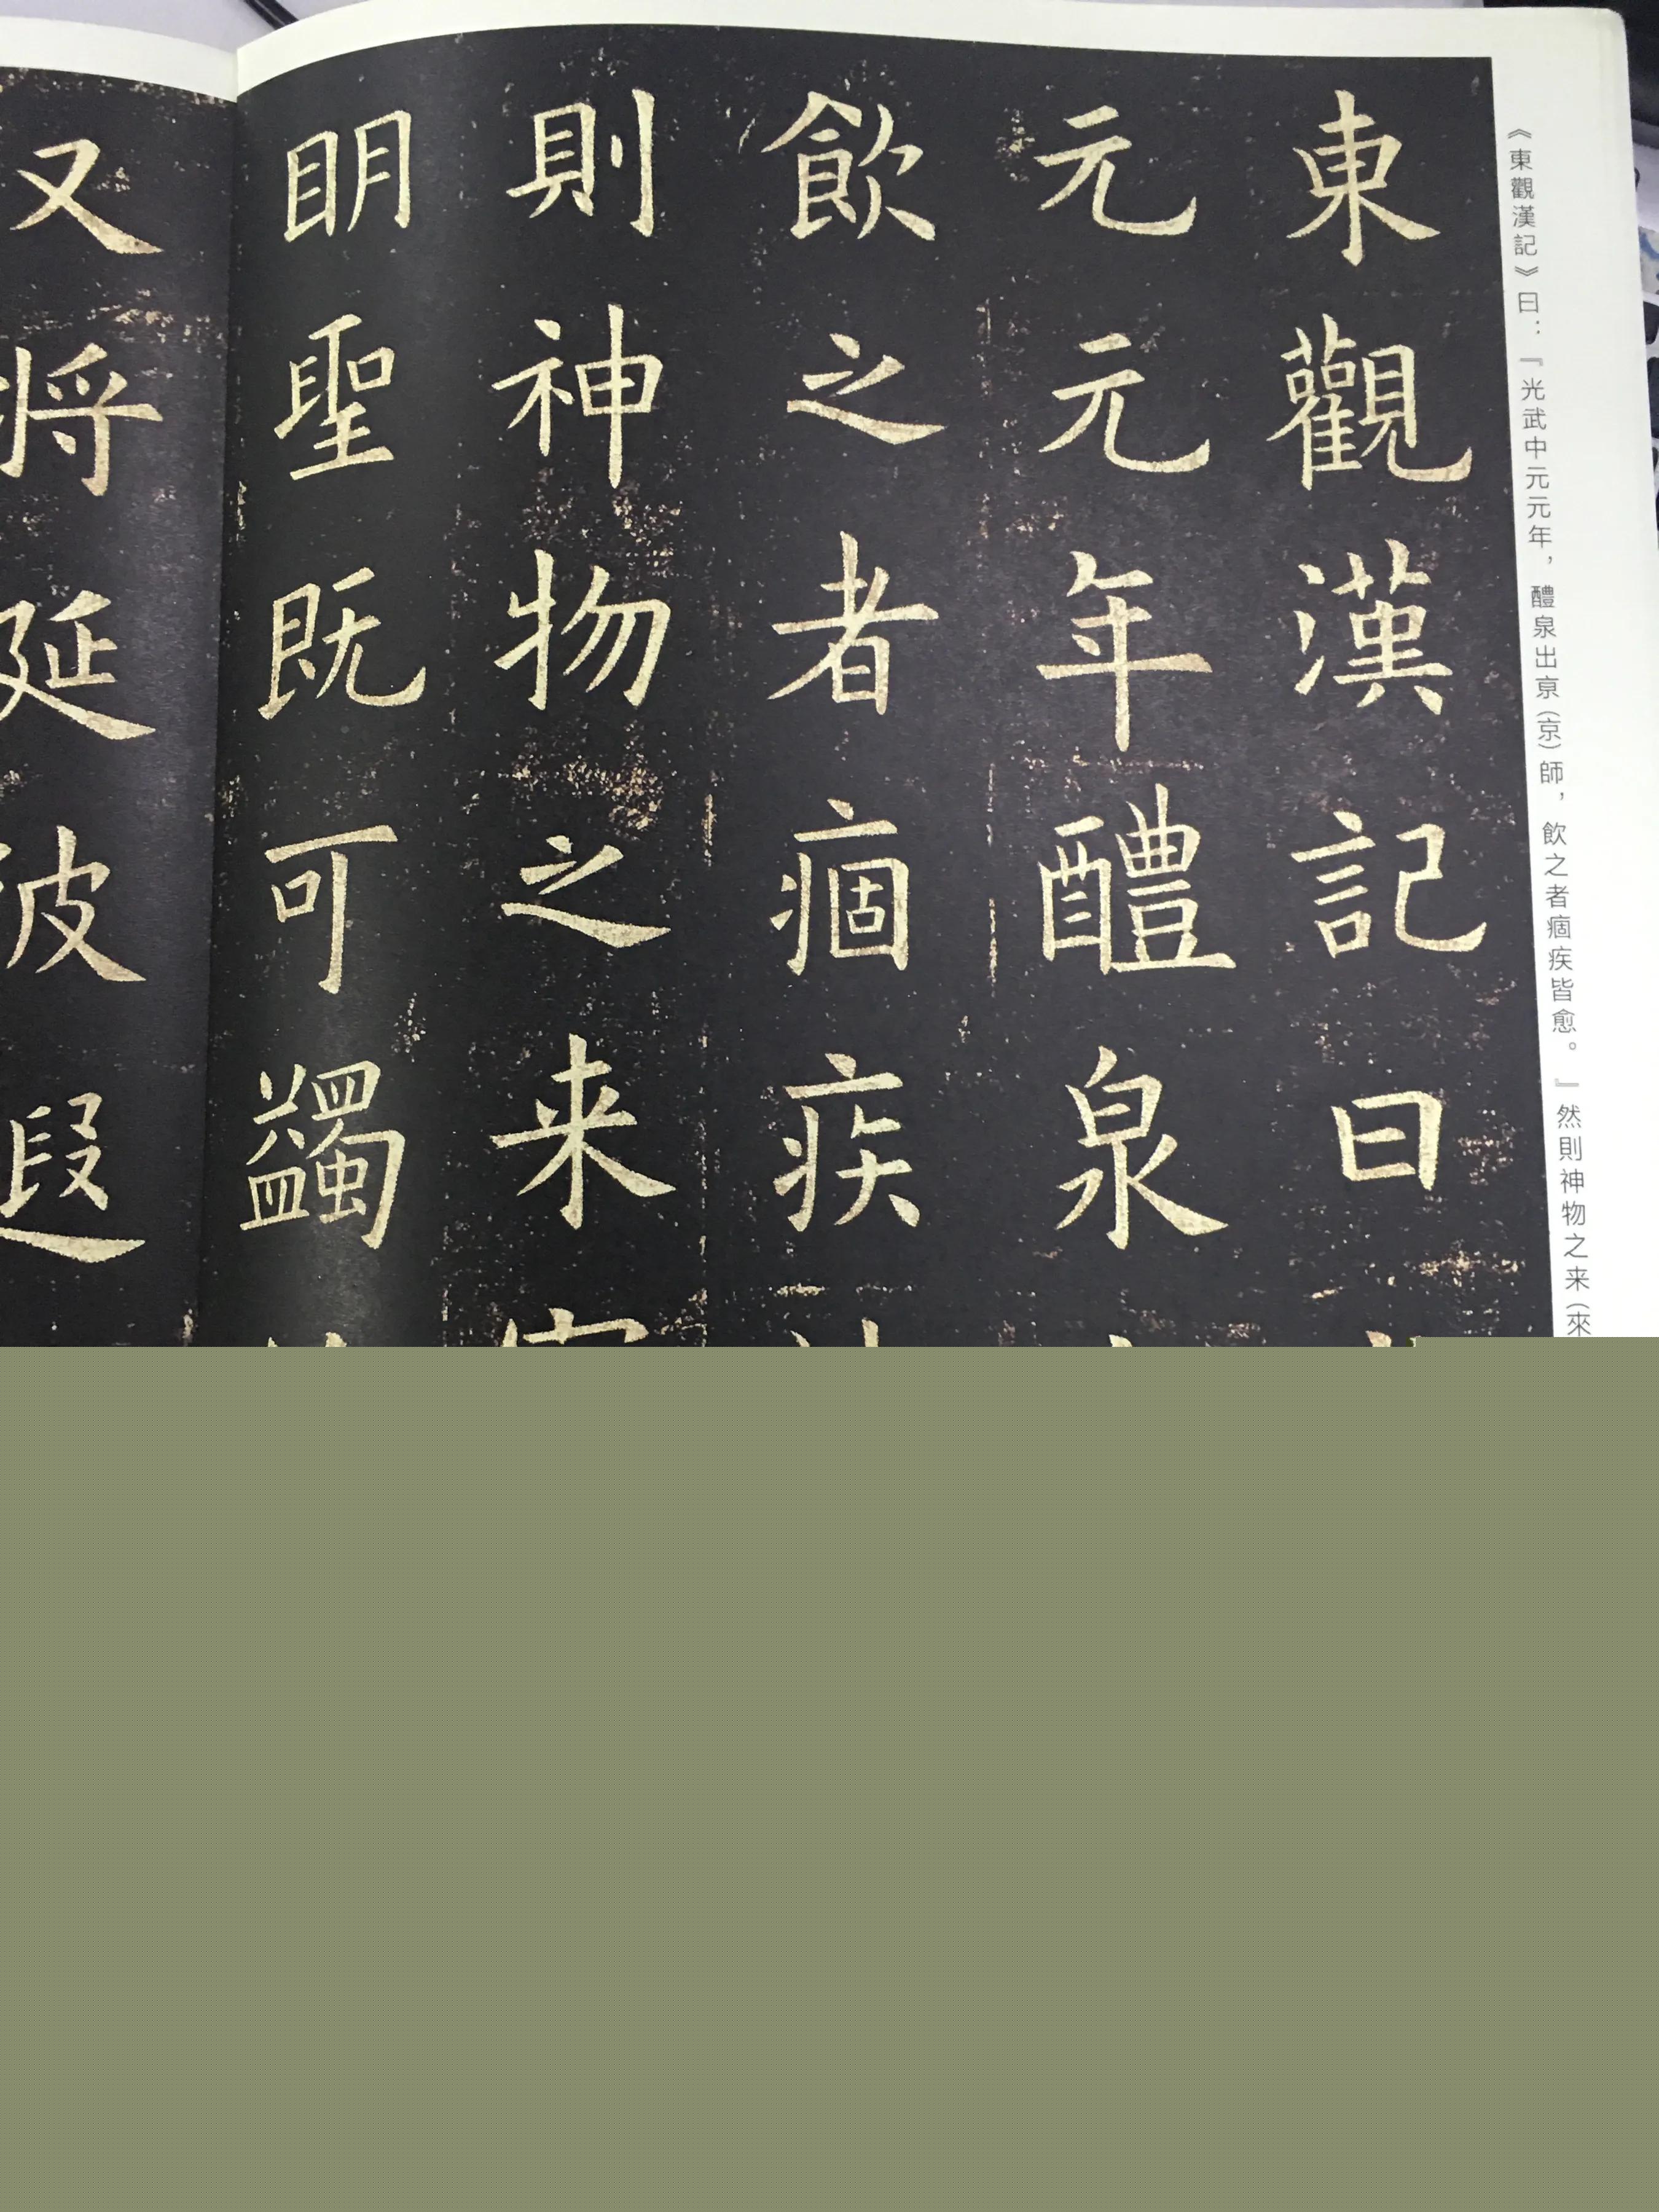 《東觀漢記》曰：『光武中元元年，醴泉出亰（京）師，飲之者痼疾皆愈。』然則神物之来（來
東觀漢記曰
元元年醴泉
飲之者痼疾
則神物之来
眀聖既可蠲
又将延彼遐